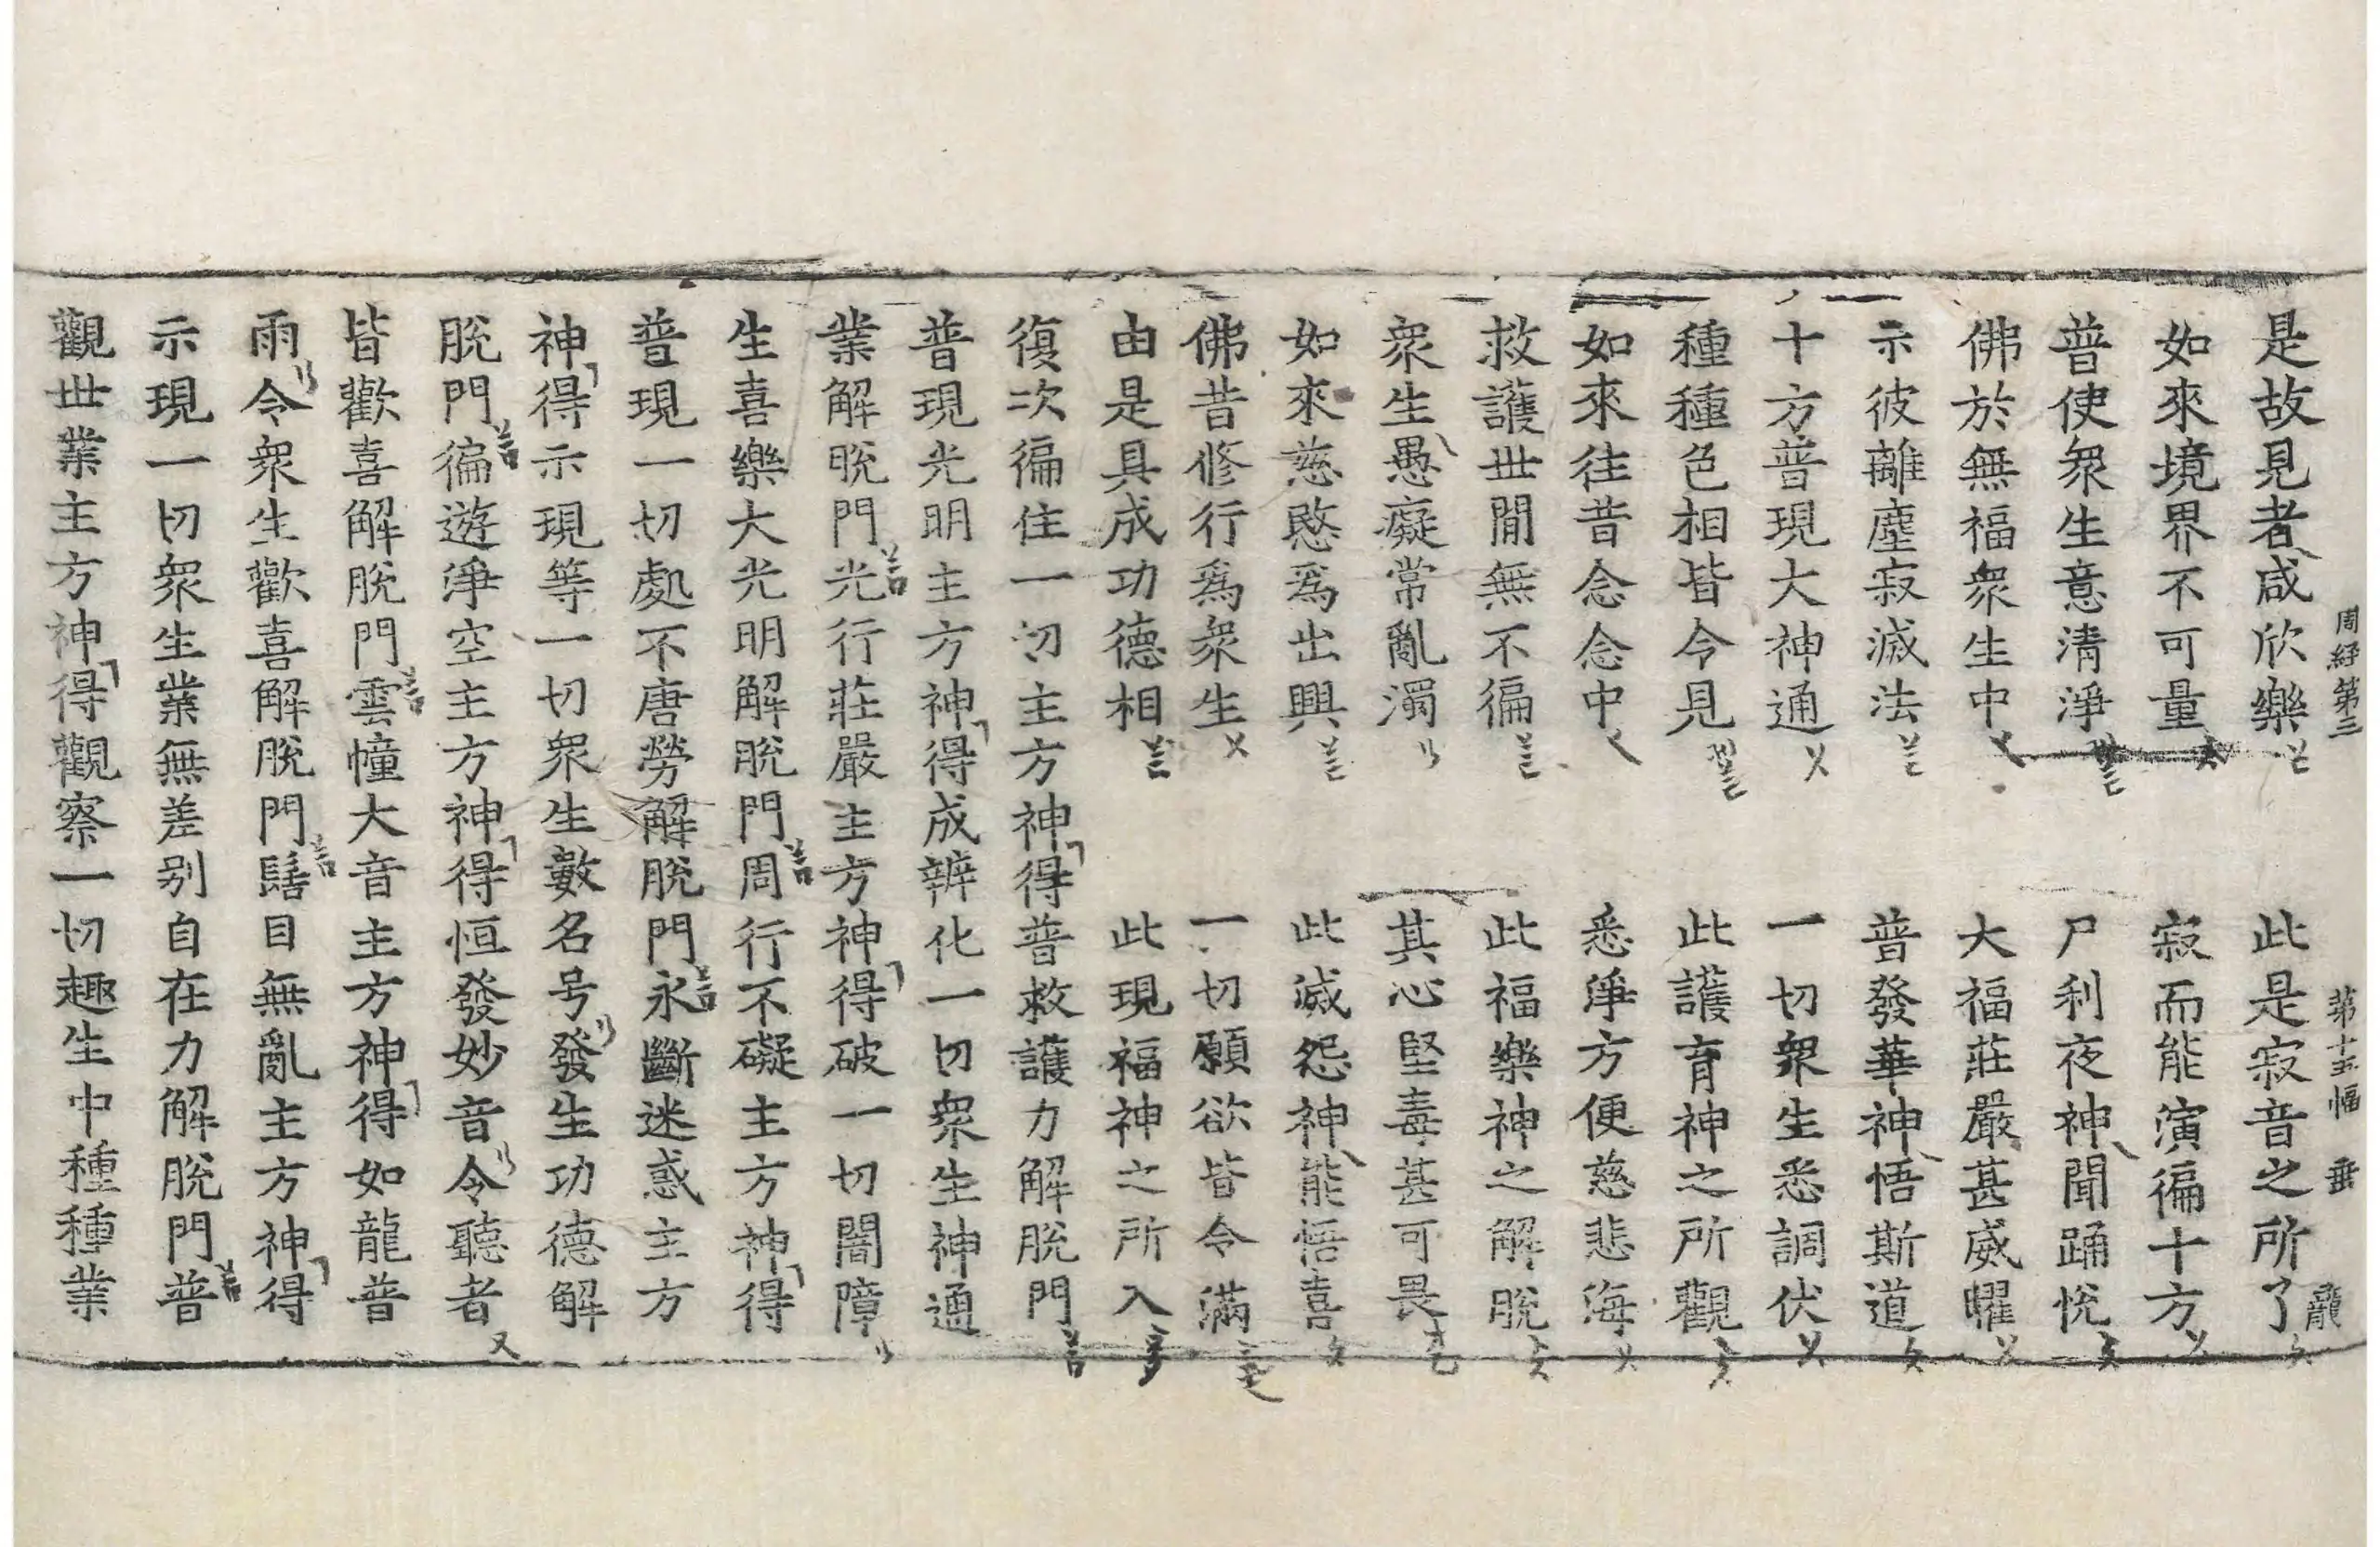 周經第三 第十五幅 垂 龍
是故見者咸欣樂 此是寂音之所了
如來境界不可量 寂而能演徧十方
普使衆生意淸淨 尸利夜神聞踊悅
佛於無福衆生中 大福莊嚴甚威曜
示彼離塵寂滅法 普發華神悟斯道
十方普現大神通 一切衆生悉調伏
種種色相皆令見 此護育神之所觀
如來往昔念念中 悉淨方便慈悲海
救護世閒無不徧 此福樂神之解脫
衆生愚癡常亂濁 其心堅毒甚可畏
如來慈愍爲出興 此滅怨神能悟喜
佛昔修行爲衆生 一切願欲皆令滿
由是具成功德相 此現福神之所入
復次徧住一切主方神得普救護力解脫門
普現光明主方神得成辨化一切衆生神通
業解脫門光行莊嚴主方神得破一切闇障
生喜樂大光明解脫門周行不礙主方神得
普現一切處不唐勞解脫門永斷迷惑主方
神得示現等一切衆生數名号發生功德解
脫門徧遊淨空主方神得恒發妙音令聽者
皆歡喜解脫門雲幢大音主方神得如龍普
雨令衆生歡喜解脫門髻目無亂主方神得
示現一切衆生業無差别自在力解脫門普
觀世業主方神得觀察一切趣生中種種業